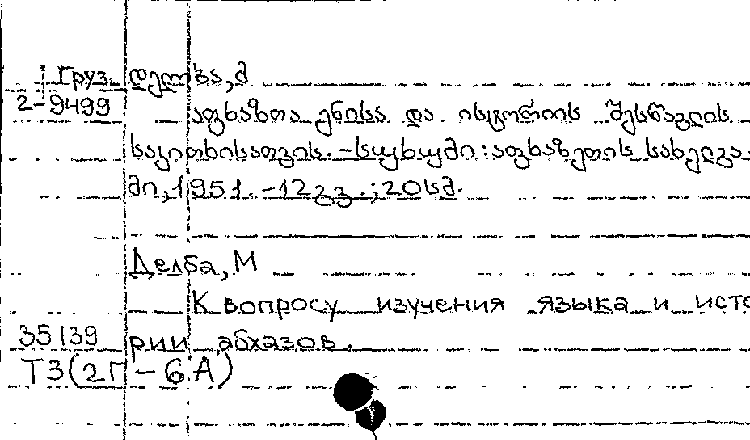 Груз. დელბა, მ
2-9499 აფხაზთა ენისა და ისტორიის შესწავლის
საკითხისათვის. - სუხუმი: აფხაზეთის სახელგა-
მი, 1951. - 12 გვ.; 20 სმ.
Делба, М
К вопросу изучения языка и исто
35139 рии абхазов.
Т3(2Г-6А)